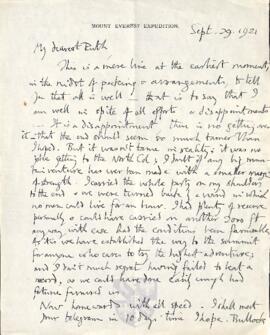 MOUNT EVEREST EXPEDITION.
Sept. 29. 1921
My dearest Ruth
This is a mere line at the earliest moment,
in the midst of packing & arrangements, to tell
you that all is well – that is to say that I
am well in spite of all efforts & disappointments
It is a disappointment, there is no getting over
it – that the end should seem so much tamer than I
hoped. But it wasn't tame in reality; it was no
joke getting to the North Col; I doubt if any big mountain
venture has ever been made with a smaller margin
of strength. I carried the whole party on my shoulders
to the end & we were turned back by a wind in which
no man could live for an hour. I had plenty of reserve
personally & could have carried on another 2000 ft
any way with ease had the conditions been favourable.
As it is we have established the way to the summit
for anyone who cares to try the highest adventure;
and I don't much regret having failed to beat a
record, as we could have done easily enough had
fortune favoured us.
Now homewards with all speed. I shall meet
your telegram in 10 days time I hope. Bullock